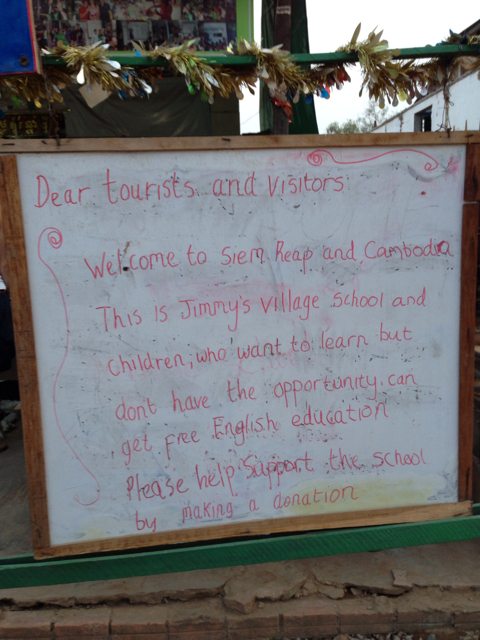 Dear tourists and visitors
Welcome to Siem Reap and Cambodia
This is Jimmy's Village School and
children, who want to learn but
dont have the opportunity can
get free English education
Please help support the school
by making a donation